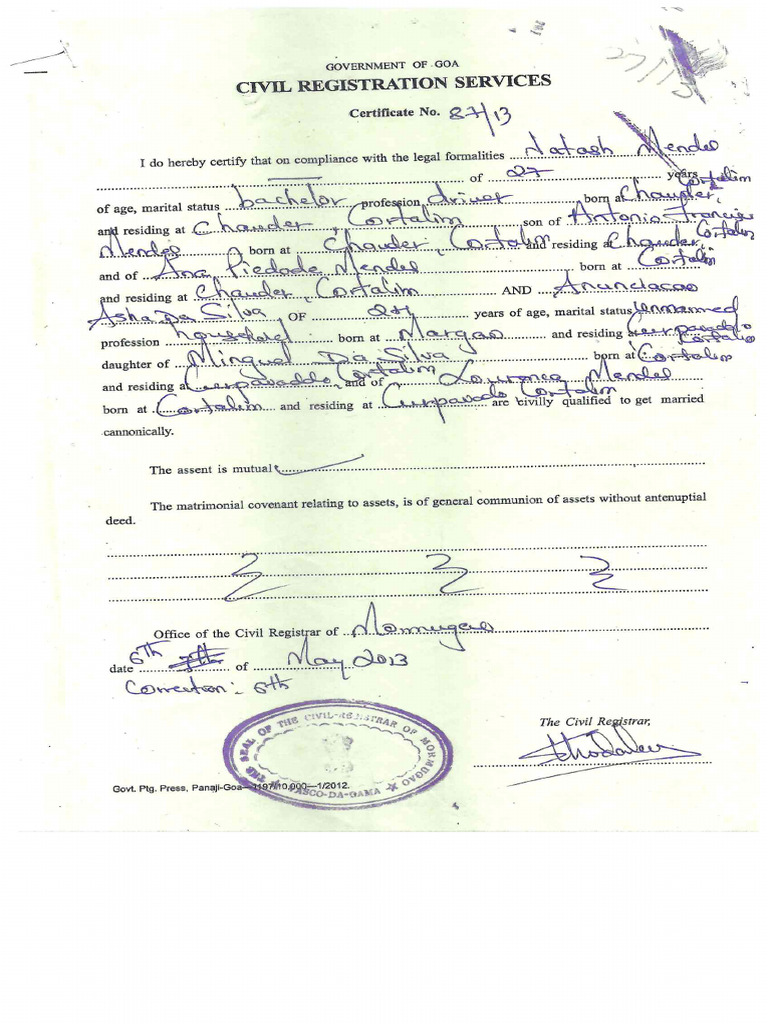 27/13
GOVERNMENT OF GOA
CIVIL REGISTRATION SERVICES
Certificate No. 87/13
I do hereby certify that on compliance with the legal formalities Natash Mendes
of 27 years
of age, marital status bachelor profession driver born at Chauder, Cortalim
and residing at Chauder, Cortalim son of Antonio Francisco
Mendes born at Chauder, Cortalim and residing at Chauder, Cortalim
and of Ana Piedade Mendes born at Cortalim
and residing at Chauder, Cortalim AND Anunciacao
Asha Da Silva OF 24 years of age, marital status Unmarried
profession household born at Margao and residing at Curpavaddo Cortalim
daughter of Minguel Da Silva born at Cortalim
and residing at Curpavaddo Cortalim and of Lourenca Mendes
born at Cortalim and residing at Curpavado Cortalim are civilly qualified to get married
cannonically.
The assent is mutual
The matrimonial covenant relating to assets, is of general communion of assets without antenuptial
deed.
Office of the Civil Registrar of Mormugao
date 6th 7th of May 2013
Correction: 6th
The Civil Registrar,
THE SEAL OF THE CIVIL-REGISTRAR OF MORMUGAO
VASCO-DA-GAMA
Govt. Ptg. Press, Panaji-Goa—1197/10,000—1/2012.